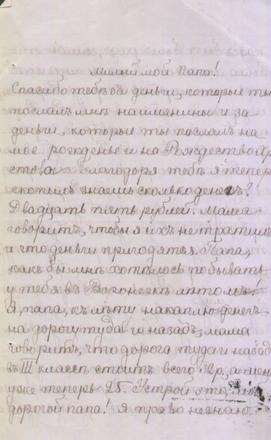 Милый мой Папа!
Спасибо тебѣ за деньги, которые ты
послалъ мнѣ на имянины и за
деньги, которыя ты послалъ на
мое рожденье и на Рождество
благодоря тебѣ я теперь
знаешь сколько денегъ?
Двадцать пять рублей. Мама
говоритъ, чтобы я ихъ не тратила
и что деньги пригодятся. Папа,
какъ бы мнѣ хотѣлось побывать
у тебя в Воронежѣ
Я, папа, къ лѣту накоплю денегъ
на дорогу туда и назадъ, мама
говоритъ, что дорога туда и назадъ
въ III классѣ стоитъ всего а у меня
уже теперь 25. Устрой это,
дорогой папа! Я право не знаю